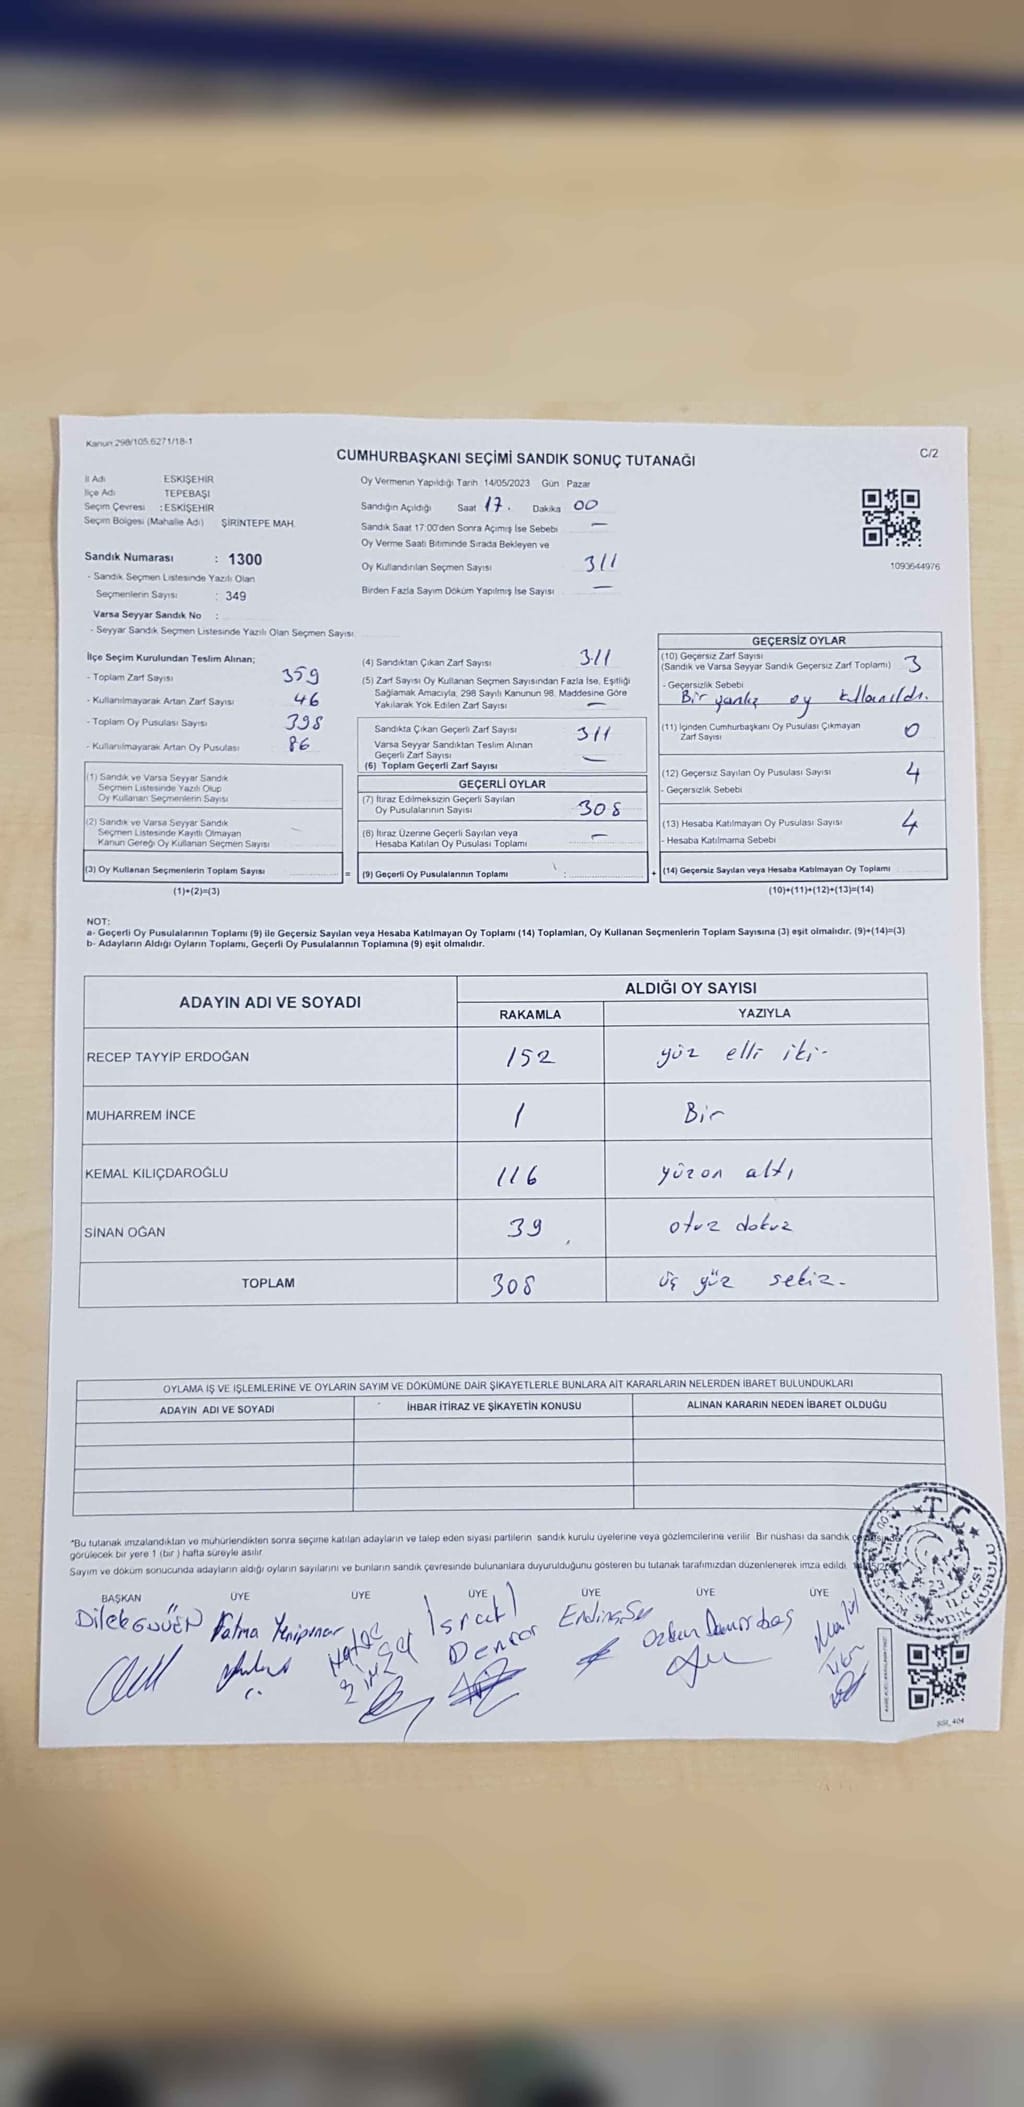 Kanun 298/105.6271/18-1
CUMHURBAŞKANI SEÇİMİ SANDIK SONUÇ TUTANAĞI
C/2
İl Adı ESKİŞEHİR
İlçe Adı TEPEBAŞI
Seçim Çevresi : ESKİŞEHİR
Seçim Bölgesi (Mahalle Adı) ŞİRİNTEPE MAH.
Sandık Numarası : 1300
- Sandık Seçmen Listesinde Yazılı Olan
Seçmenlerin Sayısı : 349
Varsa Seyyar Sandık No :
- Seyyar Sandık Seçmen Listesinde Yazılı Olan Seçmen Sayısı
Oy Vermenin Yapıldığı Tarih 14/05/2023 Gün Pazar
Sandığın Açıldığı Saat 17. Dakika 00
Sandık Saat 17:00'den Sonra Açımış İse Sebebi —
Oy Verme Saati Bitiminde Sırada Bekleyen ve
Oy Kullandırılan Seçmen Sayısı 311
Birden Fazla Sayım Döküm Yapılmış İse Sayısı —
1093644976
İlçe Seçim Kurulundan Teslim Alınan;
- Toplam Zarf Sayısı 359
- Kullanılmayarak Artan Zarf Sayısı 46
- Toplam Oy Pusulası Sayısı 398
- Kullanılmayarak Artan Oy Pusulası 86
(1) Sandık ve Varsa Seyyar Sandık
Seçmen Listesinde Yazılı Olup
Oy Kullanan Seçmenlerin Sayısı
(2) Sandık ve Varsa Seyyar Sandık
Seçmen Listesinde Kayıtlı Olmayan
Kanun Gereği Oy Kullanan Seçmen Sayısı
(3) Oy Kullanan Seçmenlerin Toplam Sayısı =
(1)+(2)=(3)
(4) Sandıktan Çıkan Zarf Sayısı 311
(5) Zarf Sayısı Oy Kullanan Seçmen Sayısından Fazla İse, Eşitliği
Sağlamak Amacıyla, 298 Sayılı Kanunun 98. Maddesine Göre
Yakılarak Yok Edilen Zarf Sayısı —
Sandıkta Çıkan Geçerli Zarf Sayısı 311
Varsa Seyyar Sandıktan Teslim Alınan
Geçerli Zarf Sayısı —
(6) Toplam Geçerli Zarf Sayısı
GEÇERLİ OYLAR
(7) İtiraz Edilmeksizin Geçerli Sayılan
Oy Pusulalarının Sayısı 308
(8) İtiraz Üzerine Geçerli Sayılan veya
Hesaba Katılan Oy Pusulası Toplamı —
(9) Geçerli Oy Pusulalarının Toplamı : +
GEÇERSİZ OYLAR
(10) Geçersiz Zarf Sayısı
(Sandık ve Varsa Seyyar Sandık Geçersiz Zarf Toplamı) 3
- Geçersizlik Sebebi
Bir yanlış oy kullanıldı.
(11) İçinden Cumhurbaşkanı Oy Pusulası Çıkmayan
Zarf Sayısı 0
(12) Geçersiz Sayılan Oy Pusulası Sayısı 4
- Geçersizlik Sebebi
(13) Hesaba Katılmayan Oy Pusulası Sayısı 4
- Hesaba Katılmama Sebebi
(14) Geçersiz Sayılan veya Hesaba Katılmayan Oy Toplamı
(10)+(11)+(12)+(13)=(14)
NOT:
a- Geçerli Oy Pusulalarının Toplamı (9) ile Geçersiz Sayılan veya Hesaba Katılmayan Oy Toplamı (14) Toplamları, Oy Kullanan Seçmenlerin Toplam Sayısına (3) eşit olmalıdır. (9)+(14)=(3)
b- Adayların Aldığı Oyların Toplamı, Geçerli Oy Pusulalarının Toplamına (9) eşit olmalıdır.
ADAYIN ADI VE SOYADI ALDIĞI OY SAYISI
RAKAMLA YAZIYLA
RECEP TAYYİP ERDOĞAN 152 yüz elli iki-
MUHARREM İNCE 1 Bir
KEMAL KILIÇDAROĞLU 116 yüzon altı
SİNAN OĞAN 39 otuz dokuz
TOPLAM 308 üç yüz sekiz-
OYLAMA İŞ VE İŞLEMLERİNE VE OYLARIN SAYIM VE DÖKÜMÜNE DAİR ŞİKAYETLERLE BUNLARA AİT KARARLARIN NELERDEN İBARET BULUNDUKLARI
ADAYIN ADI VE SOYADI İHBAR İTİRAZ VE ŞİKAYETİN KONUSU ALINAN KARARIN NEDEN İBARET OLDUĞU
*Bu tutanak imzalandıktan ve mühürlendikten sonra seçime katılan adayların ve talep eden siyasi partilerin sandık kurulu üyelerine veya gözlemcilerine verilir. Bir nüshası da sandık
görülecek bir yere 1 (bir ) hafta süreyle asılır.
Sayım ve döküm sonucunda adayların aldığı oyların sayılarını ve bunların sandık çevresinde bulunanlara duyurulduğunu gösteren bu tutanak tarafımızdan düzenlenerek imza edildi.
BAŞKAN ÜYE ÜYE ÜYE ÜYE ÜYE ÜYE
Fatma Yenipınar
T.C.
İLÇESİ
SEÇİM SANDIK KURULU